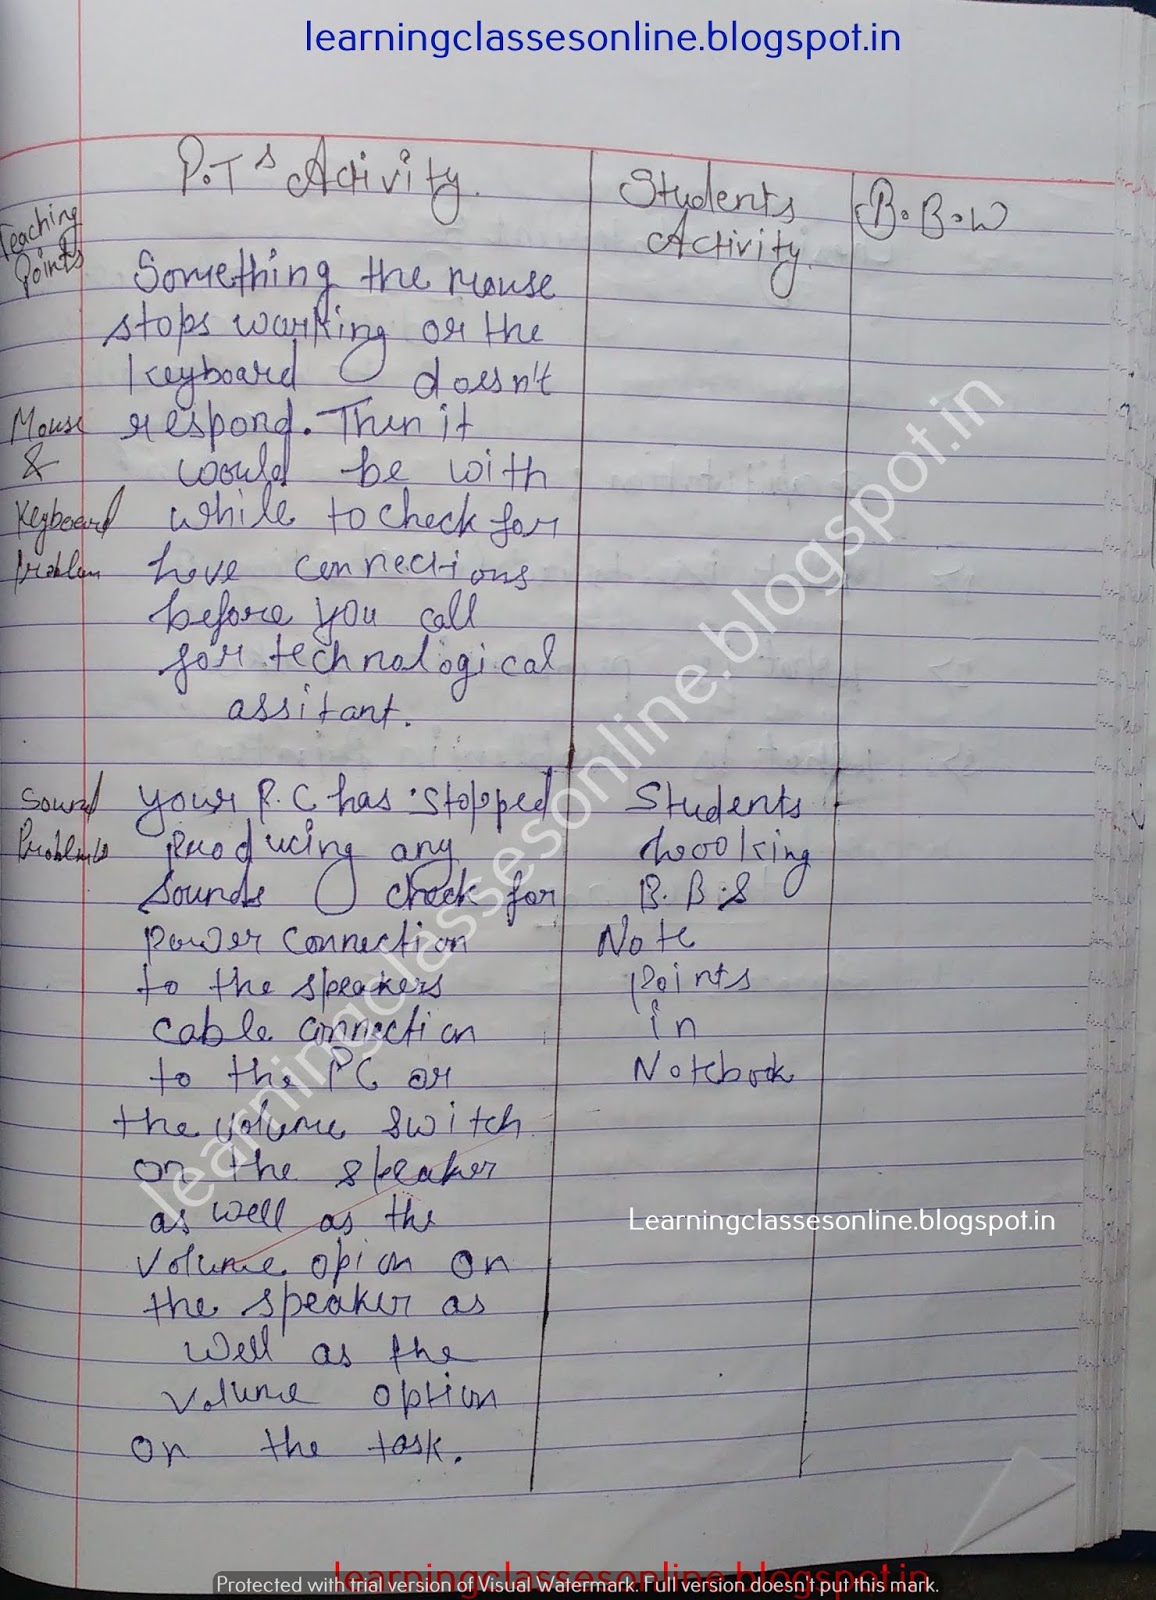 learningclassesonline.blogspot.in
P.T's Activity.
Students
Activity.
B.B.W
Teaching
Points
Something the mouse
stops warking or the
keyboard doesn't
respond. Then it
would be with
while to check for
connections
before you call
for technological
assitant.
Mouse
&
Keyboard
Problem
Sound
Problems
your P.C has stopped
producing any
sounds check for
power connection
to the speakers
cable connection
to the PC or
the volume switch
on the speaker
as well as the
volume opion on
the speaker as
well as the
volume option
on the task.
Students
looking
B.B.S
Note
Points
in
Notebook
learningclassesonline.blogspot.in
Learningclassesonline.blogspot.in
learningclassesonline.blogspot.in
Protected with trial version of Visual Watermark. Full version doesn't put this mark.